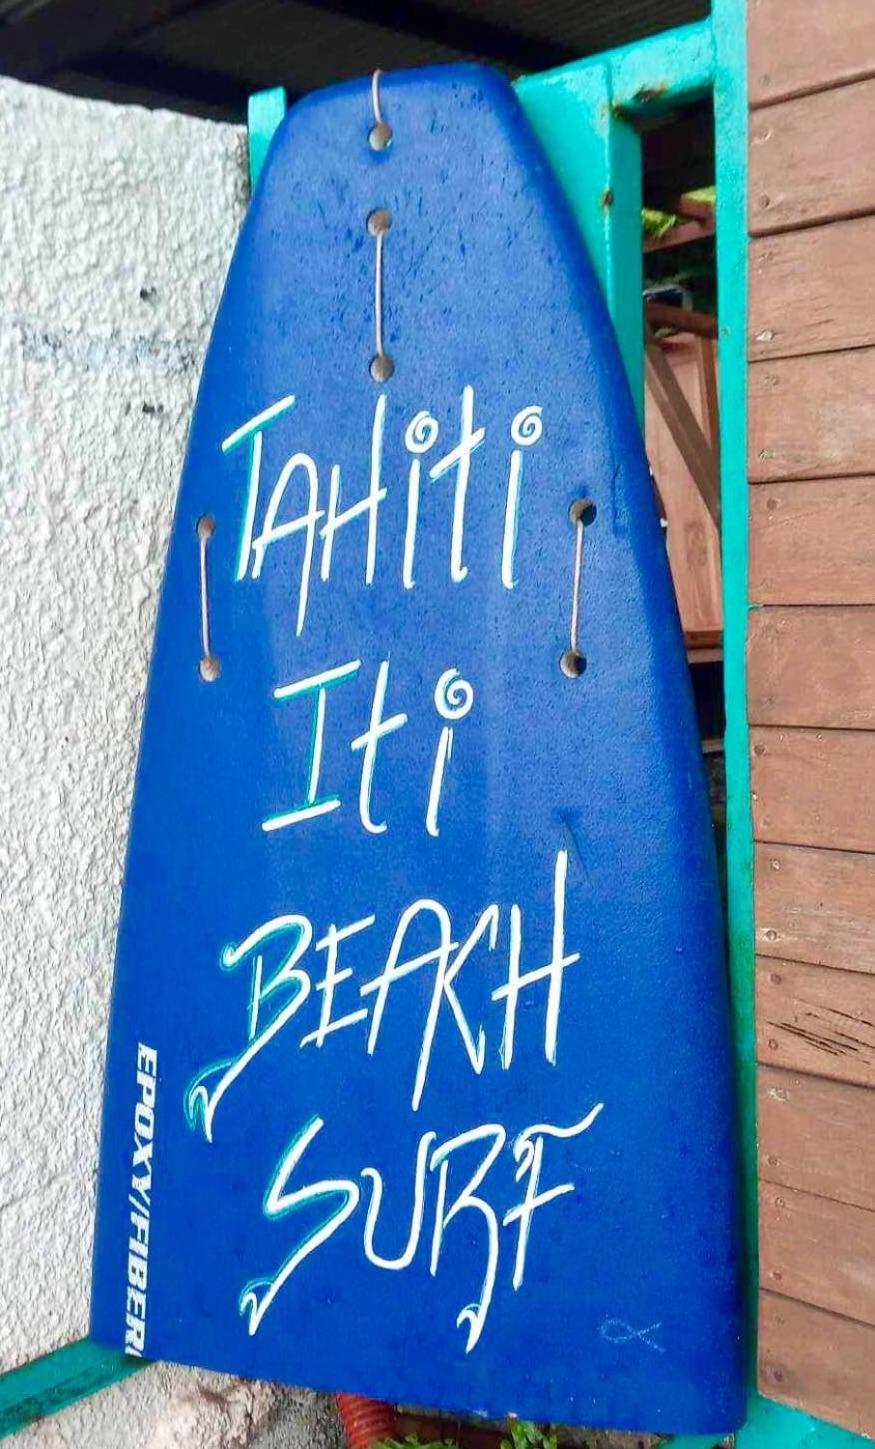 TAHiti
Iti
BEACH
SURF
EPOXY/FIBER